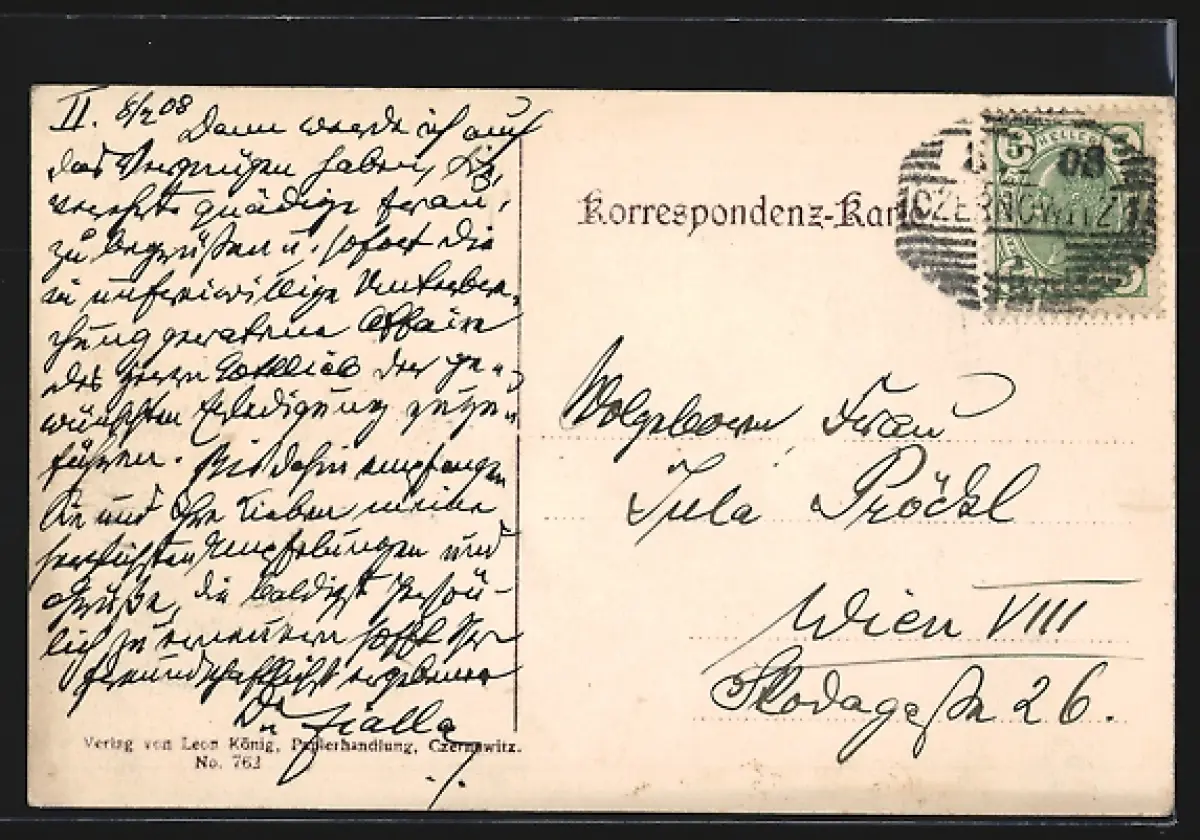 II. 8/2 08
Dann werde ich auch
das Vergnügen haben, Sie,
verehrte gnädige Frau,
zu begrüßen u. sofort die
in unfreiwillige Unterbre-
chung geratene Affaire
des Herrn Gottlieb der ge-
wünschten Erledigung zuzu-
führen. Bis dahin empfangen
Sie und Ihre Lieben meine
herzlichsten Empfelungen und
Grüße, die baldigst persön-
lich zu erneuern hofft Ihr
freundschaftlichst ergebener
Dr Fialla
Verlag von Leon König, Papierhandlung, Czernowitz.
No. 763
Korrespondenz-Karte
5 HELLER
08
CZERNOWITZ 1
Wolgeborn Frau
Jula Pröckl
Wien VIII
Skodagasse 26.